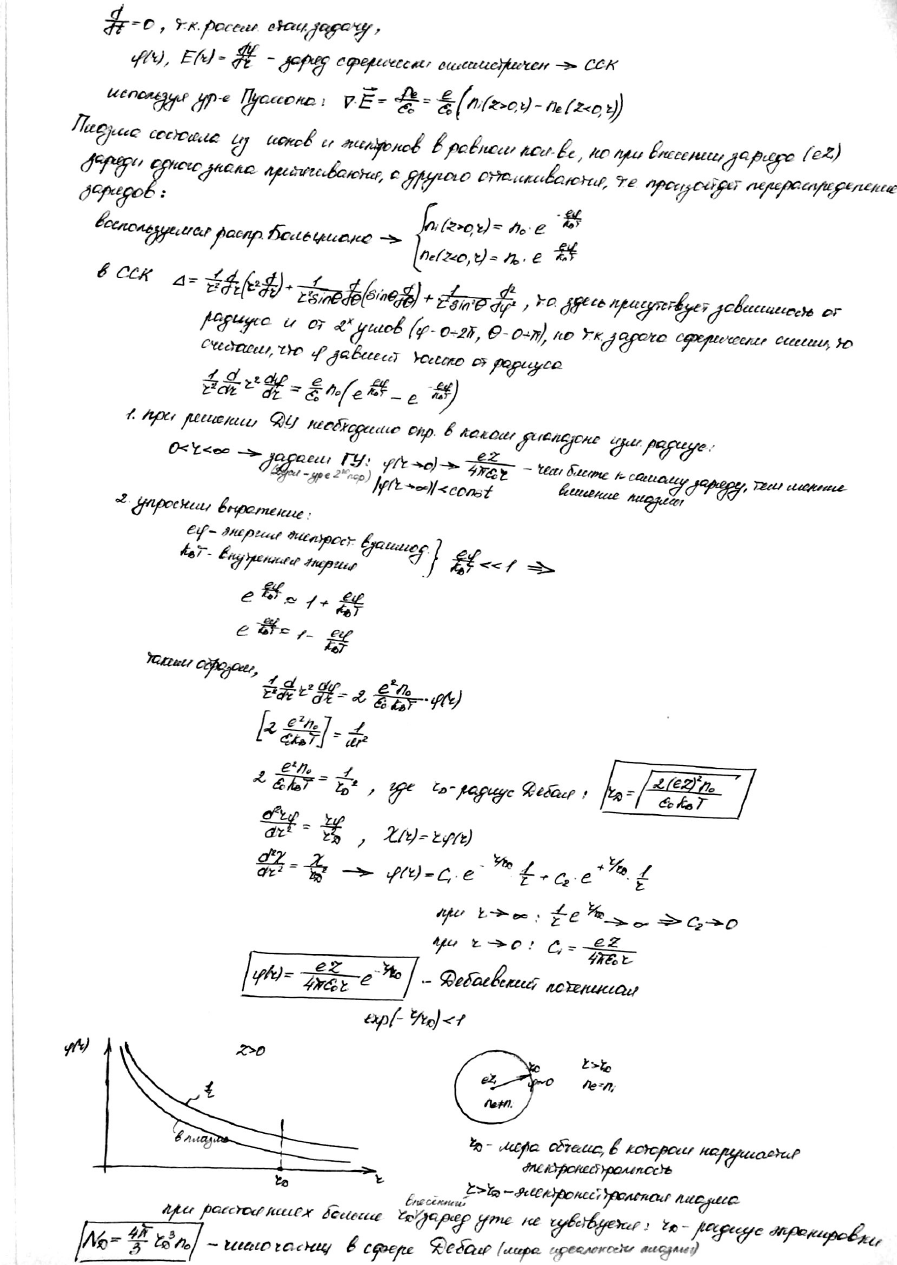 d/dt = 0, т.к. рассм. стац. задачу,
φ(r), E(r) = dφ/dr - заряд сферически симметричен → ССК
используя ур-е Пуассона: ∇·E⃗ = ρe/ε₀ = e/ε₀ (ni(z>0,r) - ne(z<0,r))
Плазма состояла из ионов и электронов в равном кол-ве, но при внесении заряда (eZ)
заряды одного знака притягиваются, а другого отталкиваются, те произойдет перераспределение
зарядов:
воспользуемся распр. Больцмана → { ni(z>0,r) = n₀·e^(-eφ/k_BT)
ne(z<0,r) = n₀·e^(eφ/k_BT)
в ССК Δ = 1/r² d/dr (r² d/dr) + 1/(r² sinθ) d/dθ (sinθ d/dθ) + 1/(r² sin²θ) d²/dφ², т.о. здесь присутствует зависимость от
радиуса и от 2ˣ углов (φ-0÷2π, θ-0÷π), но т.к. задача сферически симм, то
считаем, что φ зависит только от радиуса
1/r² d/dr r² dφ/dr = e/ε₀ n₀ (e^(eφ/k_BT) - e^(-eφ/k_BT))
1. при решении ДУ необходимо опр. в каком диапазоне изм. радиус:
0<r<∞ → задаем ГУ: φ(r→0) → eZ/4πε₀r - чем ближе к самому заряду, тем меньше
|φ(r→∞)| < const влияние плазмы
2. упростим выражение:
eφ - энергия электрост. взаимод.
k_BT - внутренняя энергия } eφ/k_BT << 1 ⇒
e^(eφ/k_BT) ≈ 1 + eφ/k_BT
e^(-eφ/k_BT) ≈ 1 - eφ/k_BT
таким образом,
1/r² d/dr r² dφ/dr = 2 e²n₀/ε₀k_BT · φ(r)
[2 e²n₀/ε₀k_BT] = 1/м²
2 e²n₀/ε₀k_BT = 1/r_D², где r_D - радиус Дебая: r_D = √(2(eZ)²n₀/ε₀k_BT)
d²rφ/dr² = rφ/r_D², χ(r) = rφ(r)
d²χ/dr² = χ/r_D² → φ(r) = C₁·e^(-r/r_D)·1/r + C₂·e^(+r/r_D)·1/r
при r→∞: 1/r e^(r/r_D) → ∞ ⇒ C₂→0
при r→0: C₁ = eZ/4πε₀r
φ(r) = eZ/4πε₀r e^(-r/r_D) - Дебаевский потенциал
exp(-r/r_D) < 1
φ(r)
z>0
1/r
в плазме
r_D
r
eZ
r_D
φ≈0
ne≠ni
r>r_D
ne=ni
r_D - мера объема, в котором нарушается
электронейтральность
r>r_D - электронейтральная плазма
при расстояниях больше r_D внесенный заряд уже не чувствуется: r_D - радиус экранировки
N_D = 4π/3 r_D³ n₀ - число частиц в сфере Дебая (мера идеальности плазмы)